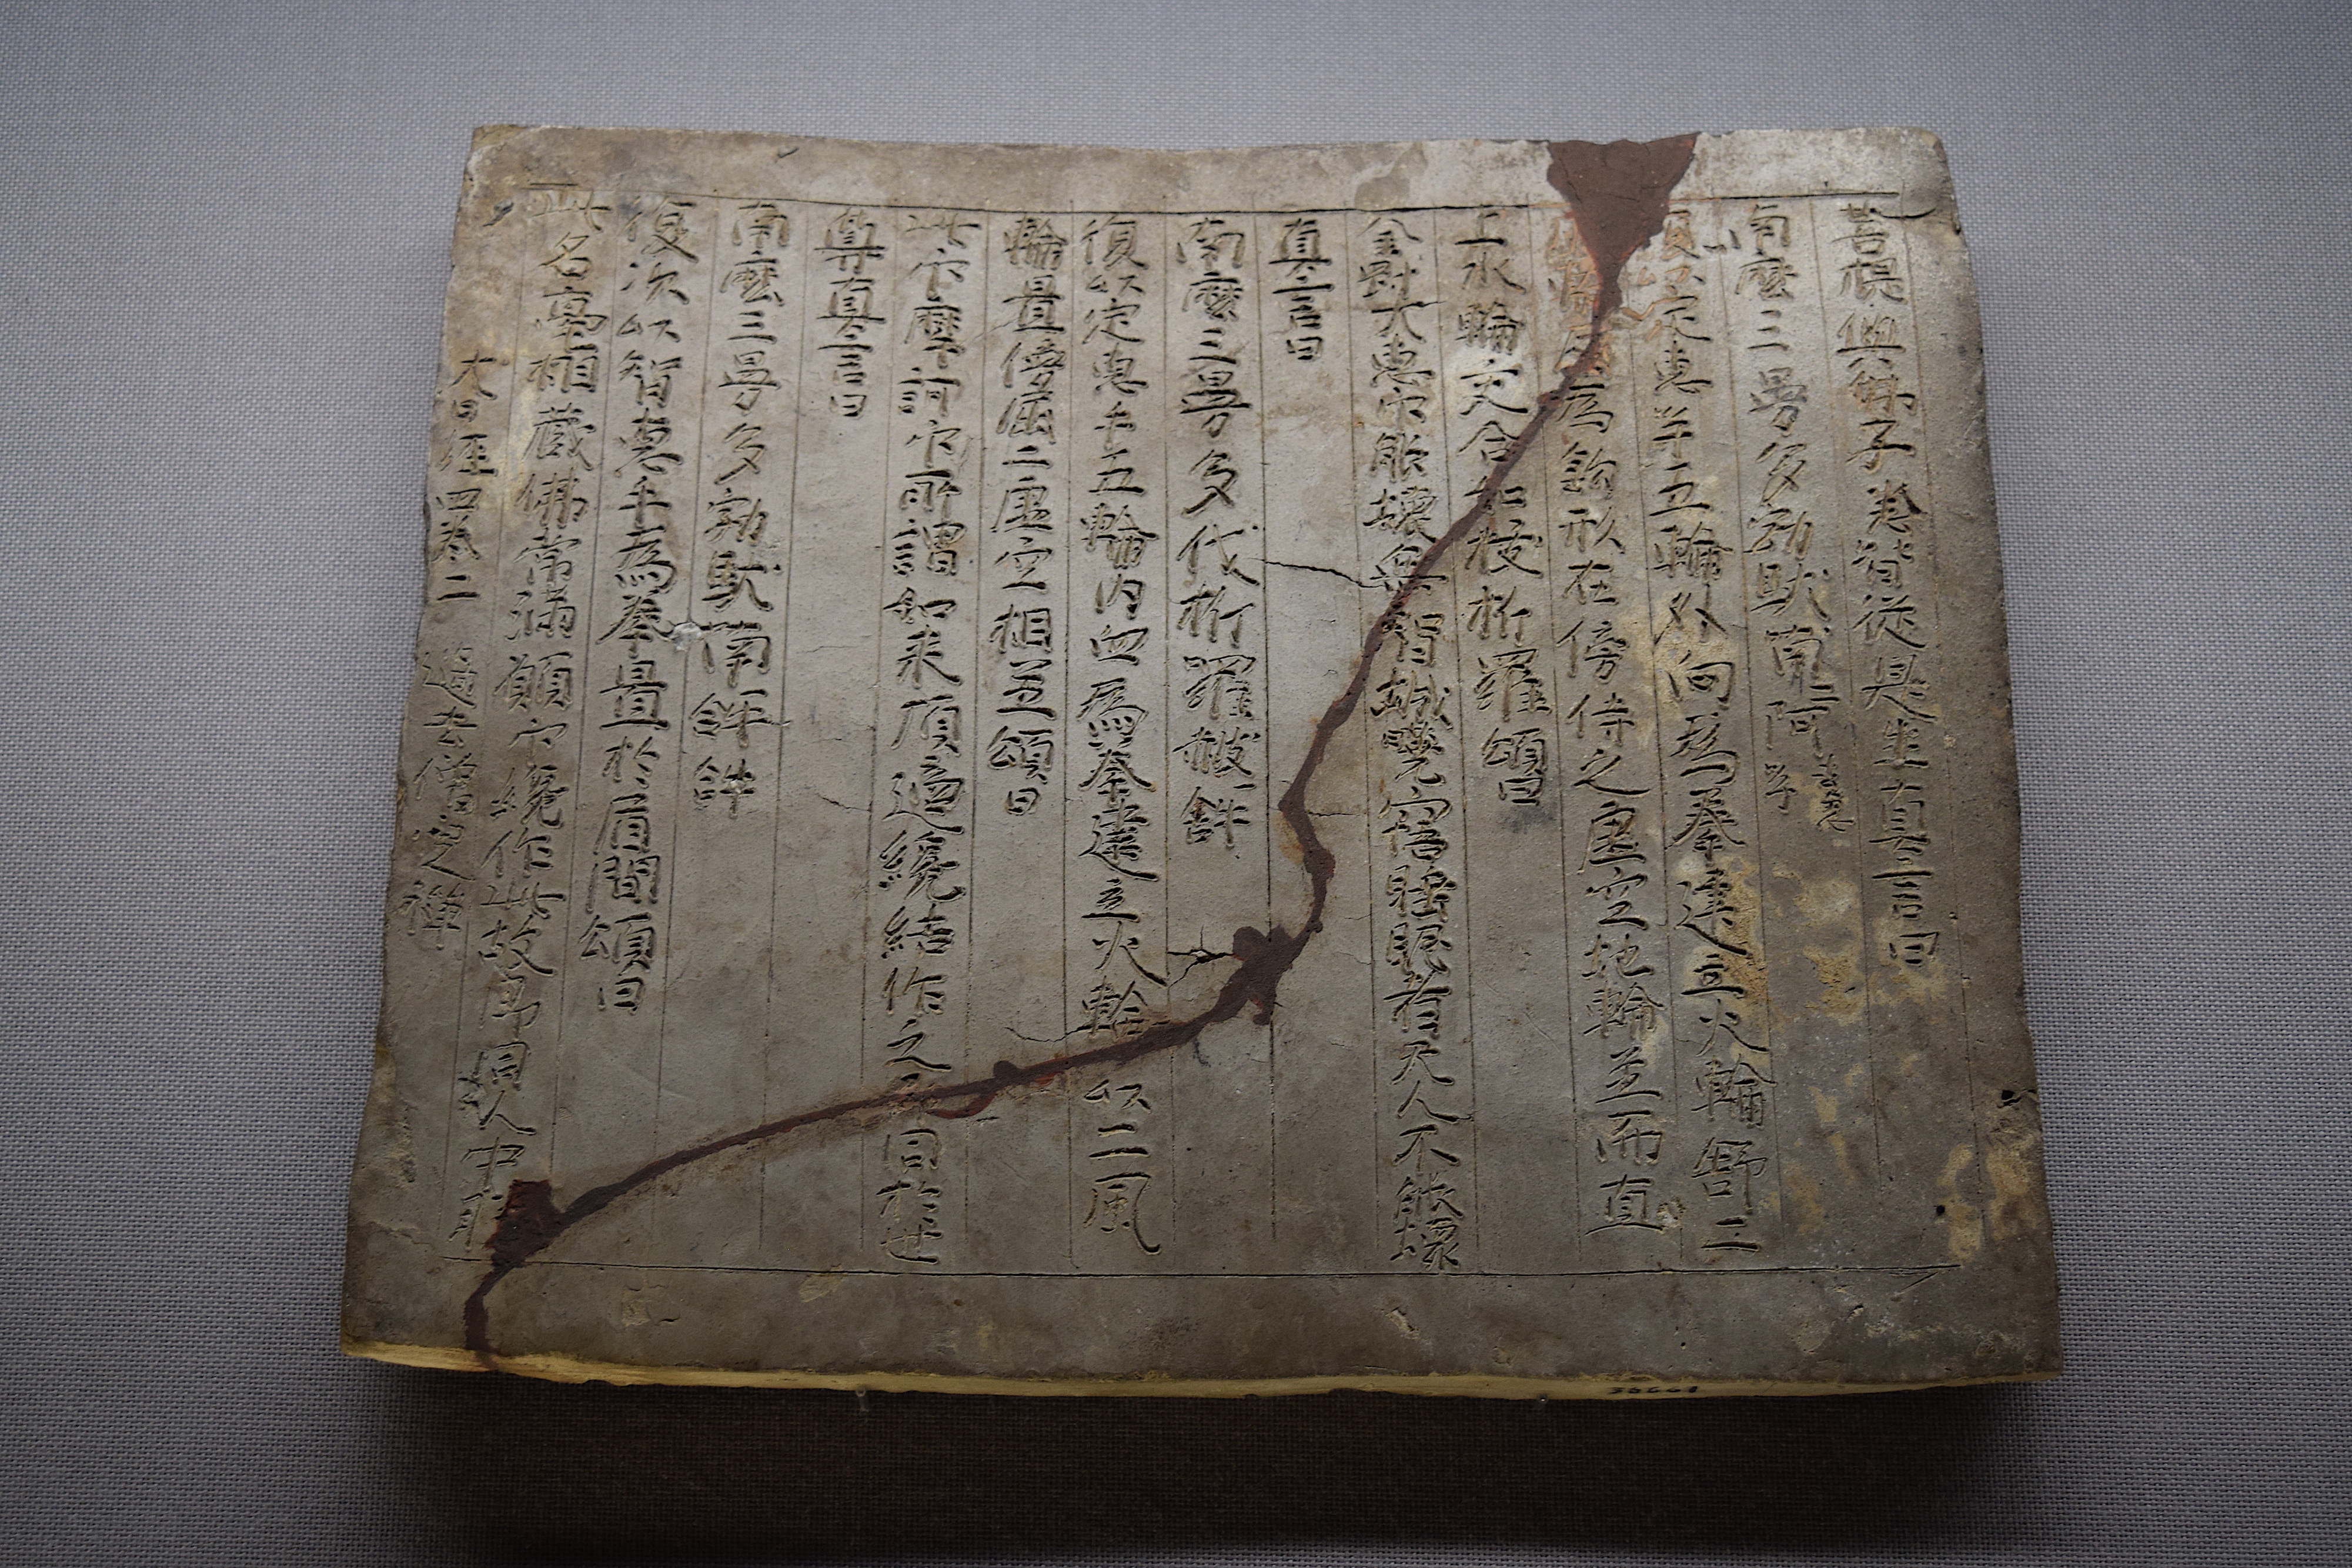 菩提與佛子悉皆從是生真言曰
南麼三曼多勃馱喃一阿急呼
復以定惠手五輪外向為拳建立火輪舒二
輪屈為鉤形在傍侍之虛空地輪並而直
上水輪交合如拔折羅頌曰
金剛大惠印能壞無智城曉寤睡眠者天人不能壞
真言曰
南麼三曼多伐折羅赧𤙖
復以定惠手五輪內向為拳建立火輪以二風
輪置傍屈二虛空相並頌曰
此印摩訶印所謂如來頂適纔結作之即同於世
尊真言曰
南麼三曼多勃馱喃𤙖𤙖
復次以智惠手為拳置於眉間頌曰
此名毫相藏佛常滿願印纔作此故即同人中勝
大日經四卷二 僧定禪